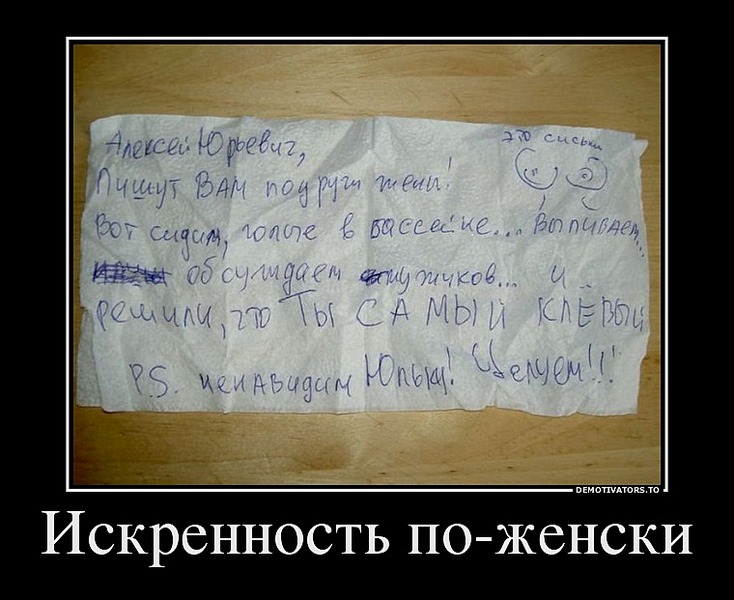 это сиськи
Алексей Юрьевич,
Пишут ВАМ подруги жены!
Вот сидим, голые в бассейне... Выпиваем...
обсуждаем мужиков... и..
решили, что Ты САМЫЙ КЛЁВЫЙ
P.S. ненавидим Юльку! Целуем!!!
DEMOTIVATORS.TO
Искренность по-женски